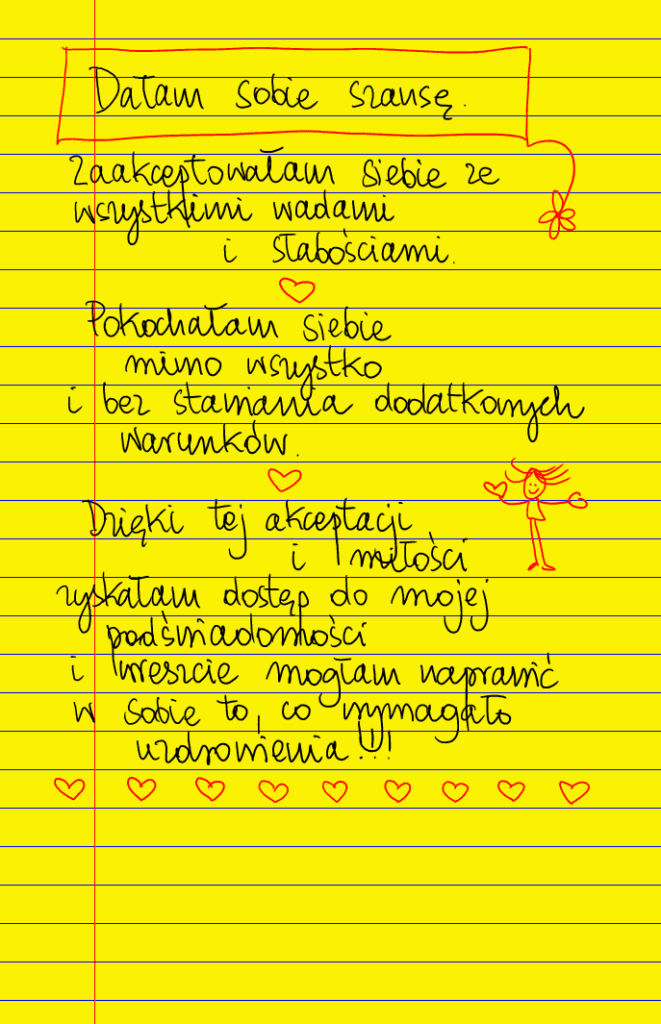 Dałam sobie szansę.
Zaakceptowałam siebie ze
wszystkimi wadami
i słabościami.
Pokochałam siebie
mimo wszystko
i bez stawiania dodatkowych
warunków.
Dzięki tej akceptacji
i miłości
zyskałam dostęp do mojej
podświadomości
i wreszcie mogłam naprawić
w sobie to, co wymagało
uzdrowienia!!!